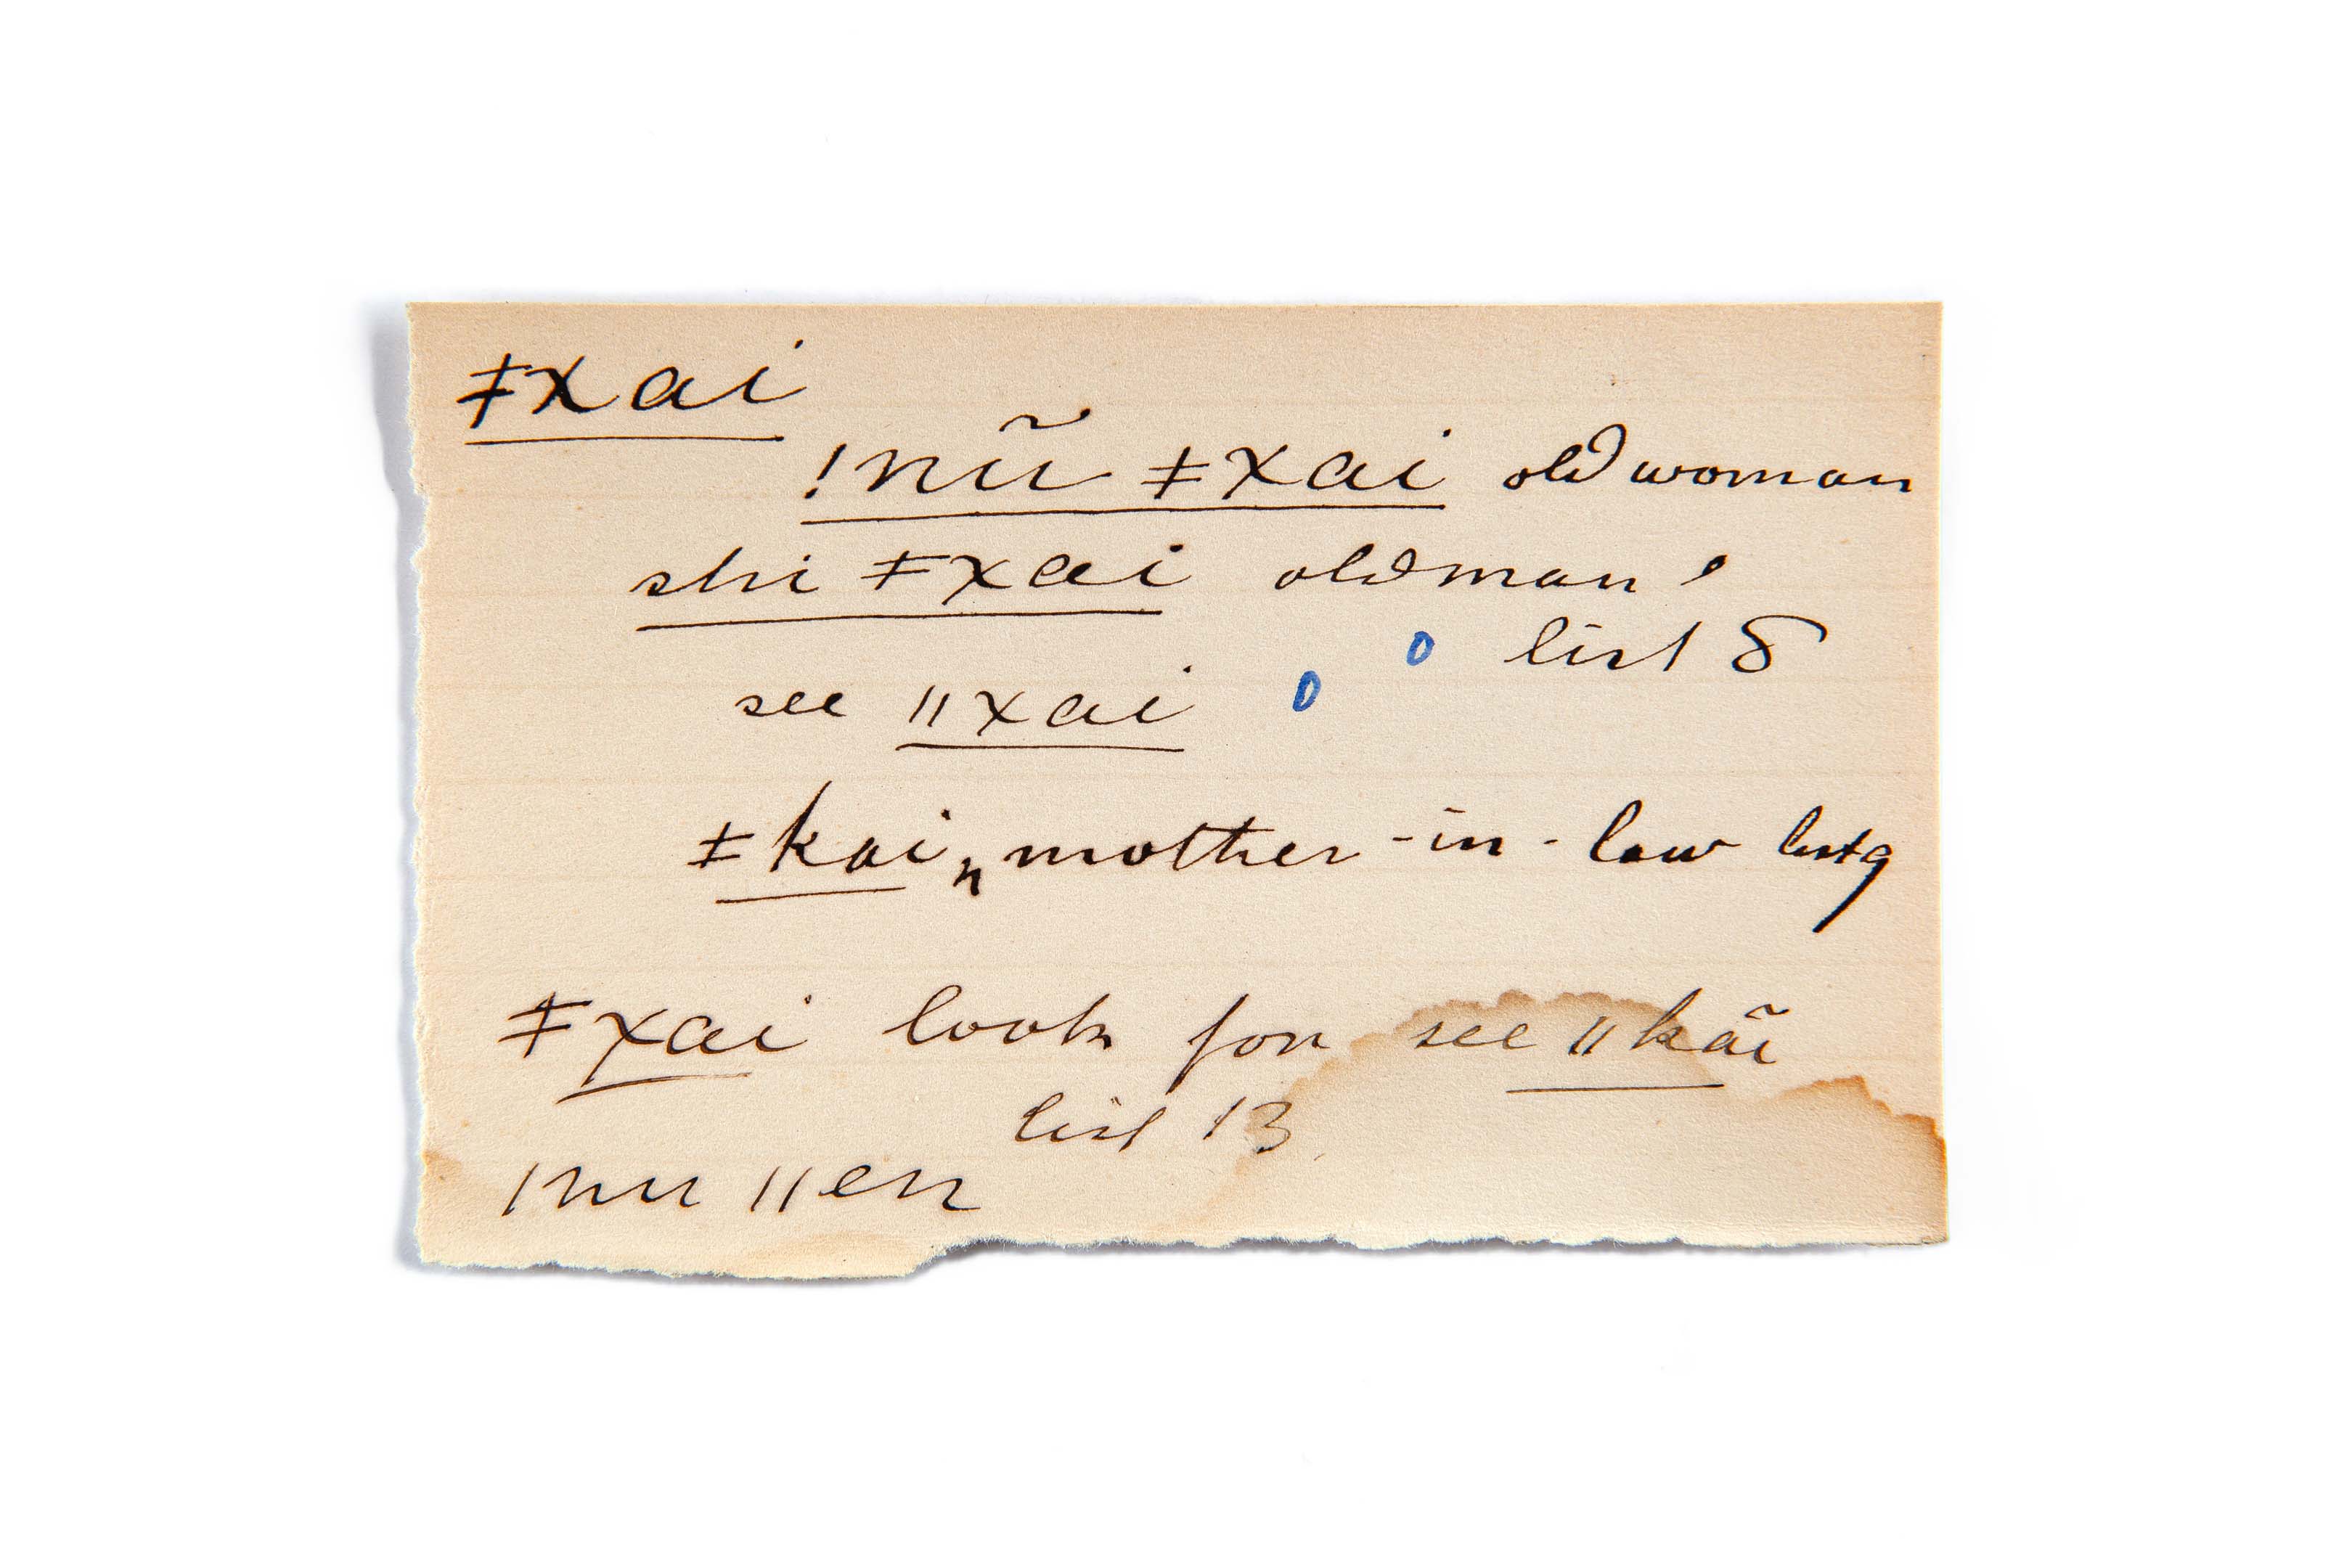 ǂxai
!nũ ǂxai old woman
shi ǂxai old man '
list 8
see ǁxai
ǂkai, mother-in-law list 9
n
ǂxai look for see ǁkãi
list 13
ǀnu ǁen